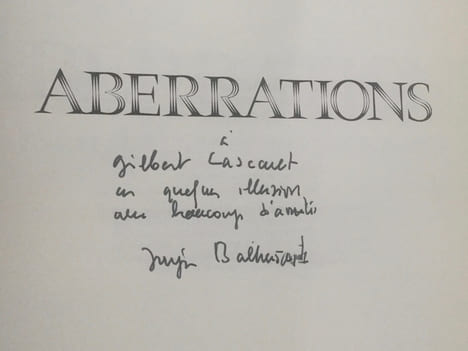 ABERRATIONS
à
Gilbert Lascault
quelques illusions
avec beaucoup d'amitié
Jurgis Baltrušaitis